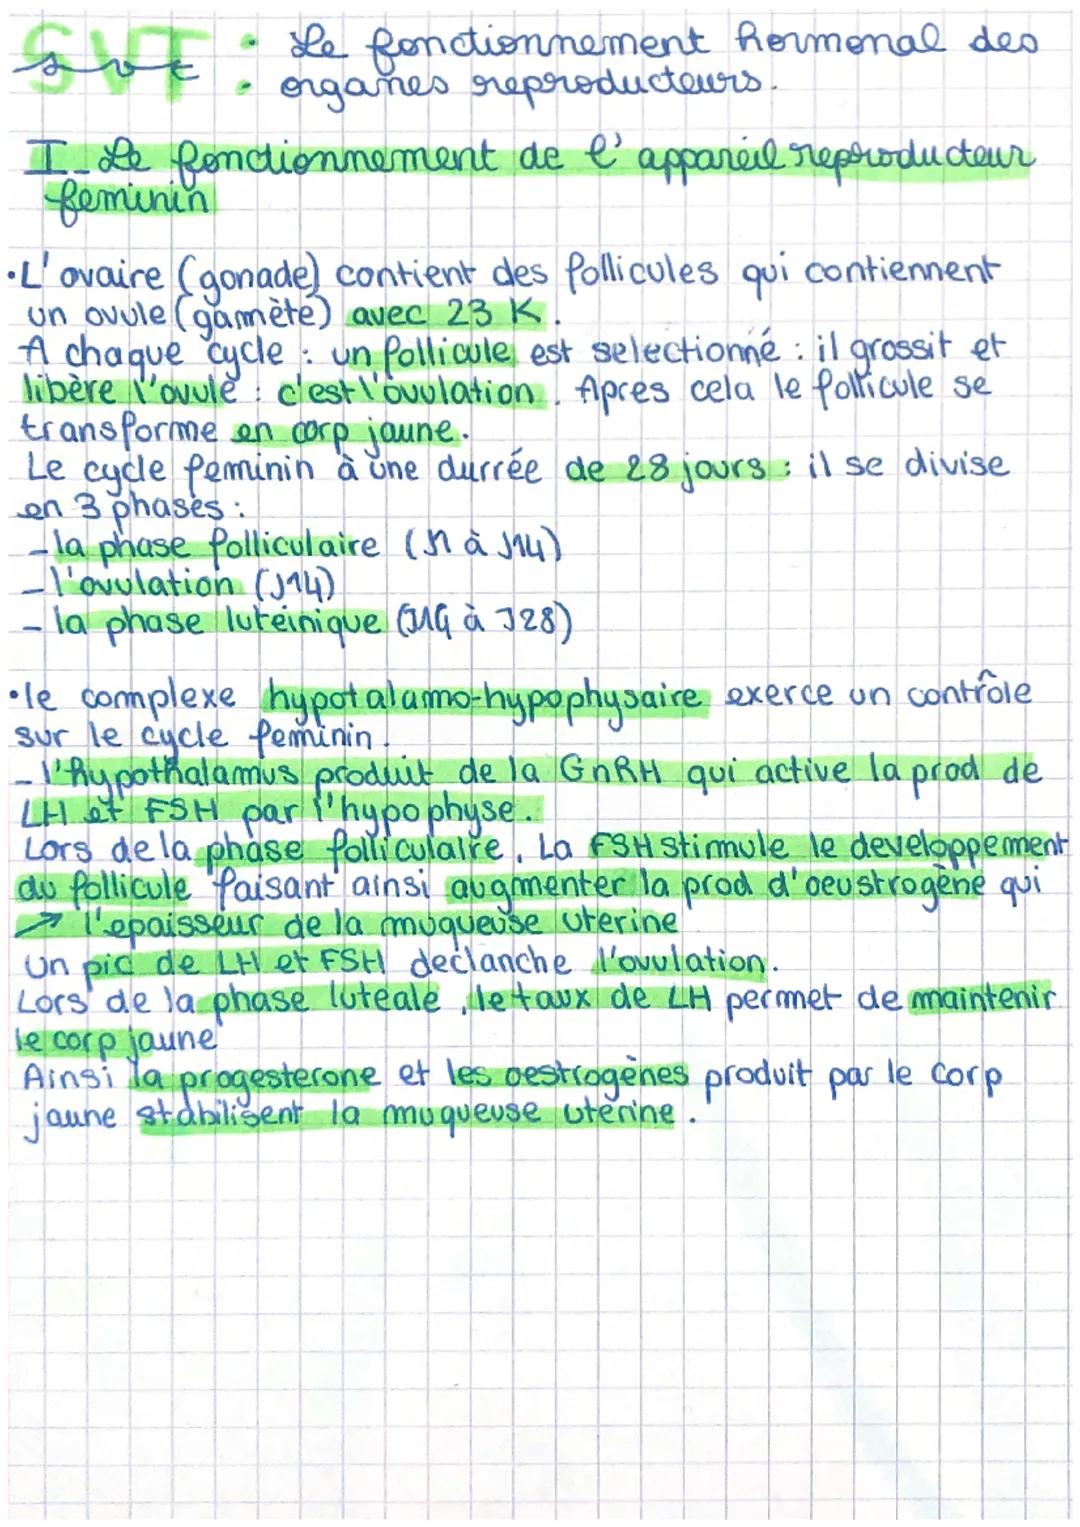 SVT : Le fonctionnement hormonal des
organes reproducteurs.
I_ Le fonctionnement de l'appareil reproducteur
feminin
•L'ovaire (gonade) contient des follicules qui contiennent
un ovule (gamète) avec 23 K.
A chaque cycle : un follicule est selectionné : il grossit et
libère l'ovule : c'est l'ovulation. Apres cela le follicule se
transforme en corp jaune.
Le cycle feminin à une durrée de 28 jours : il se divise
en 3 phases :
- la phase folliculaire (J1 à J14)
- l'ovulation (J14)
- la phase luteinique (J14 à J28)
•le complexe hypotalamo-hypophysaire exerce un contrôle
sur le cycle feminin.
- l'hypothalamus produit de la GnRH qui active la prod de
LH et FSH par l'hypophyse.
Lors de la phase folliculaire, La FSH stimule le developpement
du follicule faisant ainsi augmenter la prod d'oeustrogène qui
↗ l'epaisseur de la muqueuse uterine
Un pic de LH et FSH declanche l'ovulation.
Lors de la phase luteale, le taux de LH permet de maintenir
le corp jaune
Ainsi la progesterone et les oestrogènes produit par le corp
jaune stabilisent la muqueuse uterine.